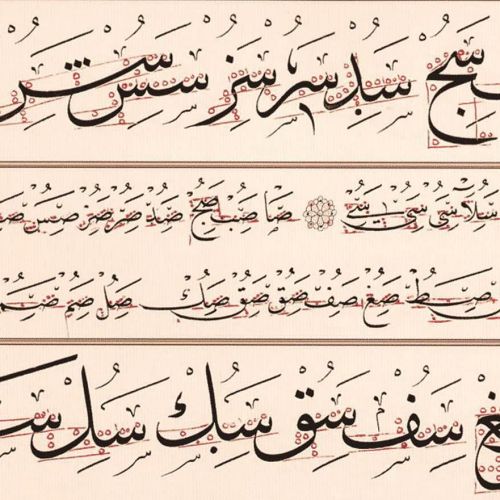 سج سد سر سر سس سر
سلا سى سى سے صا صب صج صد صر صر صس
صط صع صف صق صق صك صل صم صم
سف سق سك سل